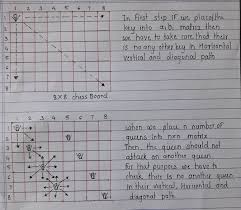 1 2 3 4 5 6 7 8
In First step if we place the
key into a:b: matrix then
we have to take care that their
is no any other key in Horizontal
vertical and diagonal path
8x8 chess Board.
1 2 3 4 5 6 7 8
when we place n number of
queens into nxn matrix
Then, the queen should not
attack on another queen
For that purpose we have to
check, there is no another queen
in their vertical, Horizontal and
diagonal path